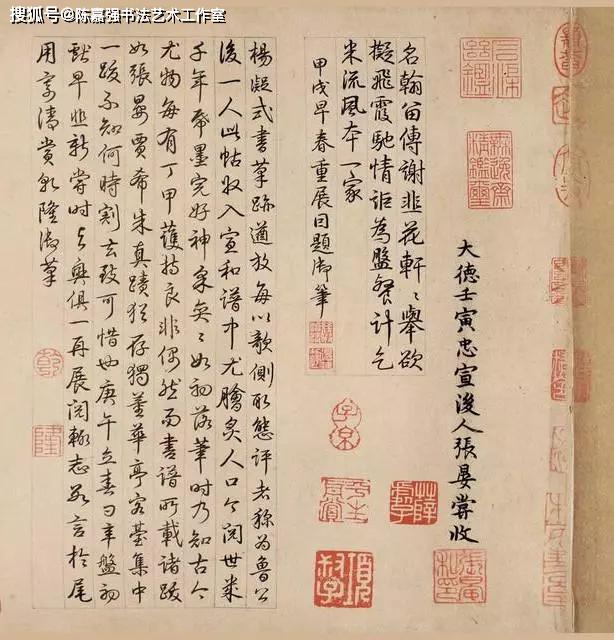 搜狐号@陈嘉强书法艺术工作室
大德壬寅忠宣後人張晏嘗收
名翰留傳謝韭花軒〻舉欲
擬飛霞馳情詎為盤餐計乞
米流風本一家
甲戌早春重展因題御筆
楊凝式書筆跡遒放每以欹側取態評者稱為魯公
後一人此帖收入宣和譜中尤膾炙人口今閱世幾
千年帋墨完好神采奕〻如初落筆時乃知古今
尤物每有丁甲護持良非偶然而書譜所載諸跋
如張晏賈希朱真蹟猶存獨董華亭容臺集中
一跋不知何時割去致可惜也庚午立春日辛盤初
獻早韭新嘗時與興俱一再展閱輒志數言於尾
用寫清賞乾隆御筆
乾
隆
子京
張晏私印